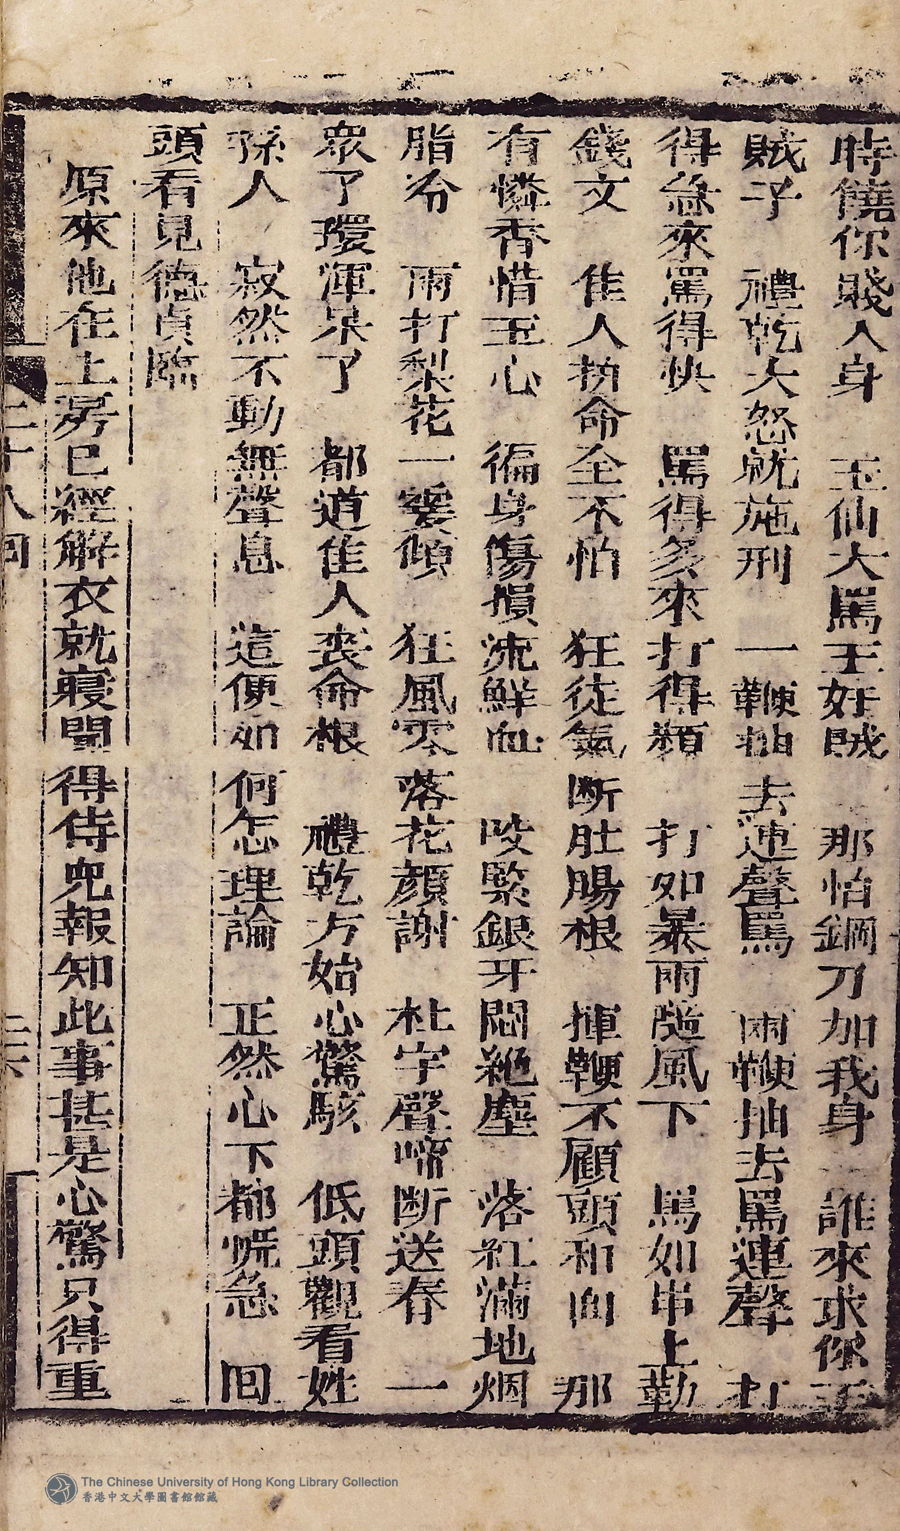 時饒你賤人身　玉仙大罵王奸賊　那怕鋼刀加我身　誰來求你王
賊子　禮乾大怒就施刑　一鞭抽去連聲罵　兩鞭抽去罵連聲　打
得急來罵得快　罵得多來打得頻　打如暴雨隨風下　罵如串上勒
錢文　佳人拚命全不怕　狂徒氣断肚腸根　揮鞭不顧頭和面　那
有憐香惜玉心　徧身傷損流鮮血　咬緊銀牙悶絶塵　落紅滿地烟
脂冷　雨打梨花一霎傾　狂風零落花顏謝　杜宇聲啼断送春　一
衆了環渾呆了　都道佳人丧命根　禮乾方始心驚駭　低頭觀看姓
孫人　寂然不動無聲息　這便如何怎理論　正然心下都慌急　回
頭看見德貞臨
原來他在上房已經解衣就寢聞得侍兒報知此事甚是心驚只得重
二十八回
二六
The Chinese University of Hong Kong Library Collection
香港中文大學圖書館館藏